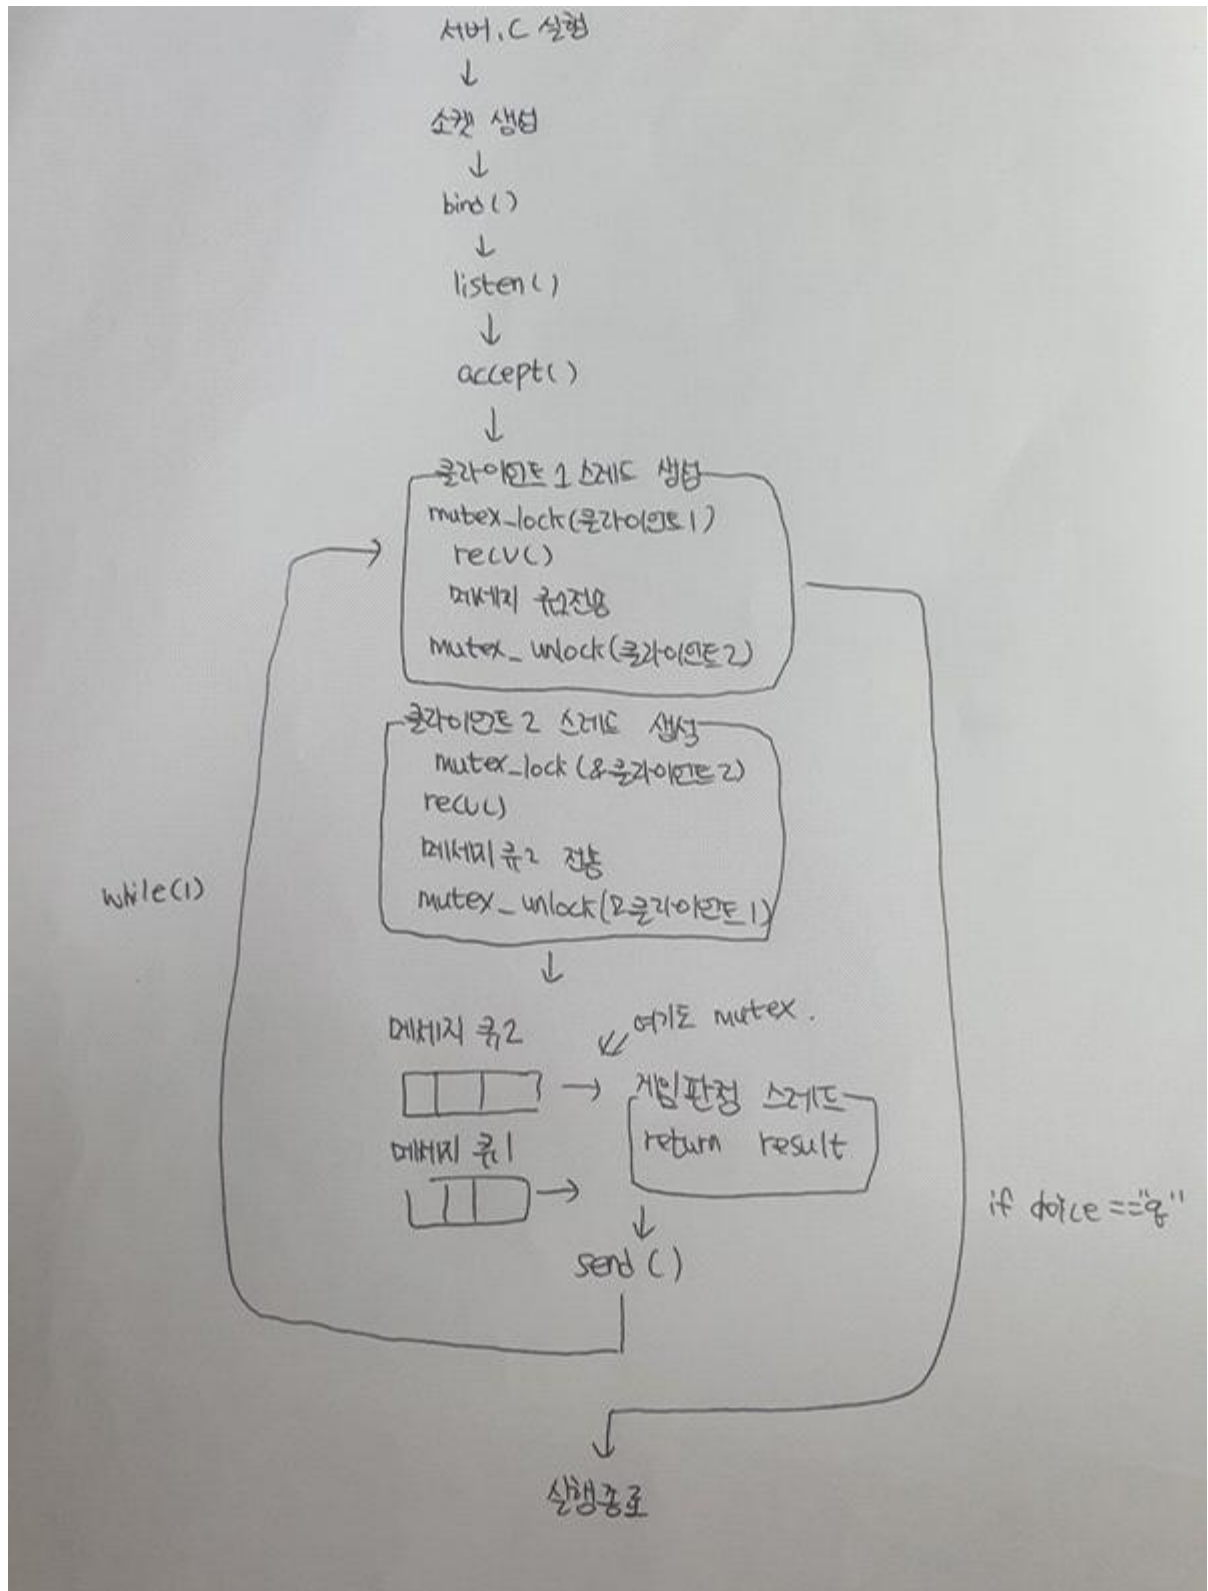 서버.C 실행
소켓 생성
bind()
listen()
accept()
클라이언트1 스레드 생성
mutex_lock(클라이언트1)
recv()
메세지 큐1전송
mutex_unlock(클라이언트2)
클라이언트2 스레드 생성
mutex_lock(&클라이언트2)
recv()
메세지 큐2 전송
mutex_unlock(&클라이언트1)
while(1)
메세지 큐2
여기도 mutex.
게임판정 스레드
return result
메세지 큐1
if choice =="q"
send()
실행종료